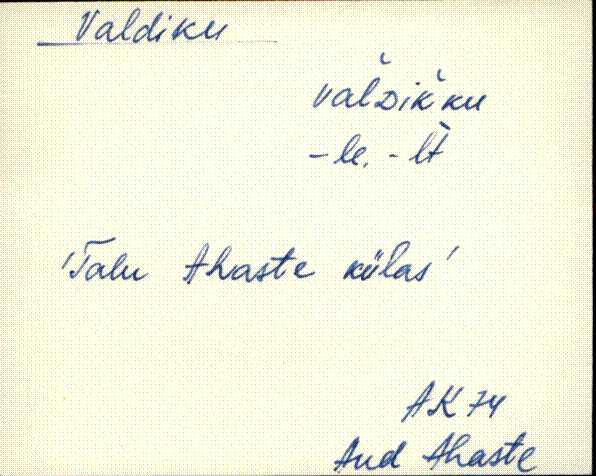 Valdiku
val̆Dik̆ku
-le. -lt̆
'Talu Ahaste külas'
AK 74
Aud Ahaste